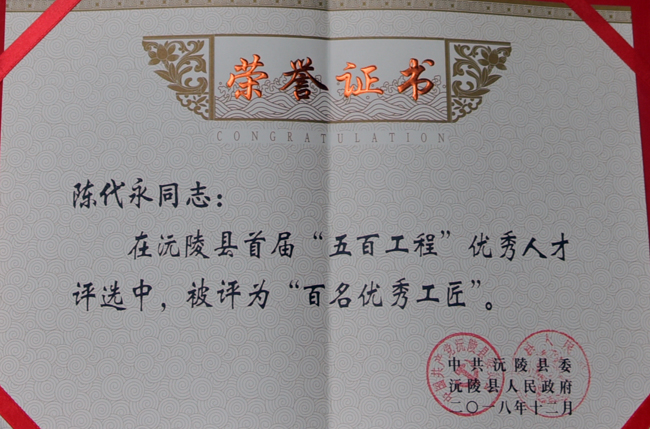 荣誉证书
CONGRATULATION
陈代永同志：
在沅陵县首届“五百工程”优秀人才
评选中，被评为“百名优秀工匠”。
中共沅陵县委
沅陵县人民政府
二〇一八年十二月